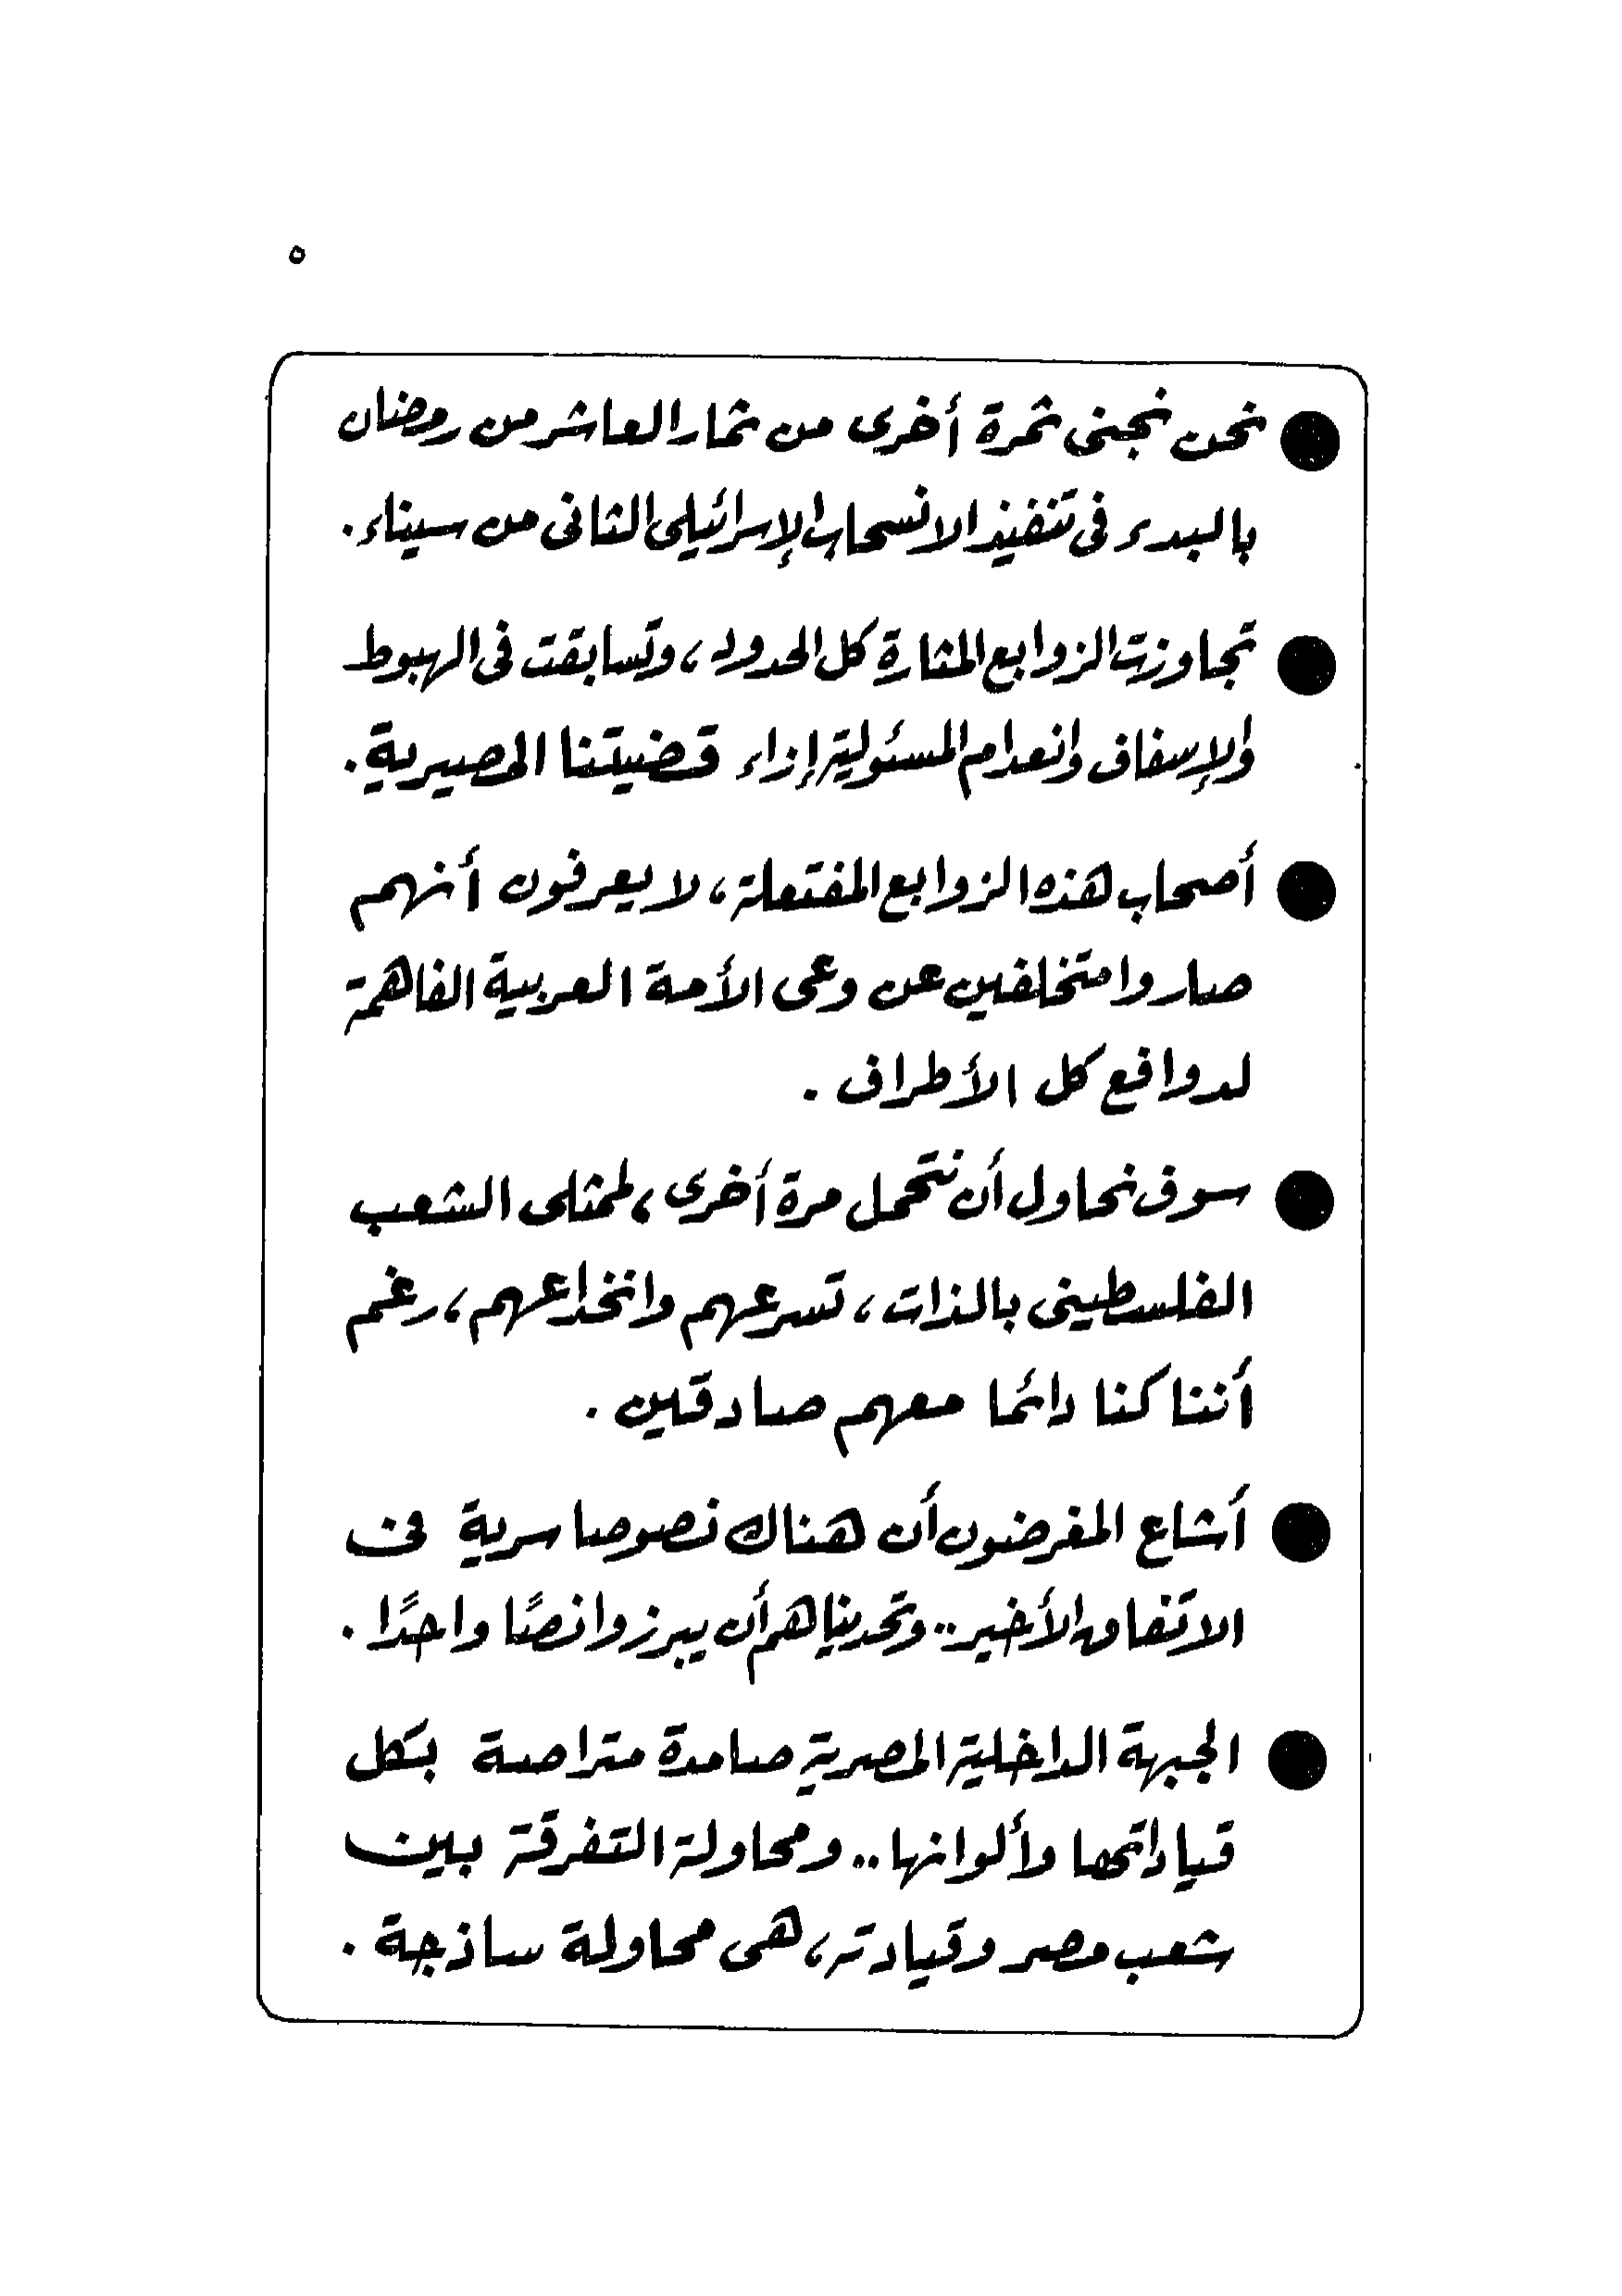 ٥
● نحن نجنى ثمرة أخرى من ثمار العاشر من رمضان
بالبدء فى تنفيذ الانسحاب الإسرائيلى الثانى من سيناء.
● تجاوزت الزوابع المثارة كل الحدود، وتسابقت فى الهبوط
والإسفاف وانعدام المسئولية إزاء قضيتنا المصيرية.
● أصحاب هذه الزوابع المفتعلة، لا يعرفون أنهم
صاروا متخلفين عن وعى الأمة العربية الفاهمة
لدوافع كل الأطراف.
● سوف نحاول أن نتحمل مرة أخرى، لممثلى الشعب
الفلسطينى بالذات، تسرعهم وانخداعهم، رغم
أننا كنا دائما معهم صادقين.
● أشاع المغرضون أن هناك نصوصا سرية فى
الاتفاق الأخير.. وتحديناهم أن يبرزوا نصًا واحدًا.
● الجبهة الداخلية المصرية صامدة متراصة بكل
قياداتها وألوانها.. ومحاولة التفرقة بين
شعب مصر وقيادته، هى محاولة ساذجة.